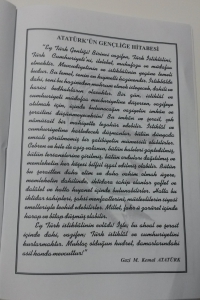 ATATÜRK'ÜN GENÇLİĞE HİTABESİ
"Ey Türk Gençliği! Birinci vazifen, Türk İstiklâlini,
Türk Cumhuriyeti'ni, ilelebet, muhafaza ve müdafaa
etmektir. Mevcudiyetinin ve istikbâlinin yegâne temeli
budur. Bu temel, senin en kıymetli hazinendir. İstikbâlde
dahi, seni bu hazineden mahrum etmek isteyecek, dahilî ve
haricî bedhahların olacaktır. Bir gün, istiklâl ve
cumhuriyeti müdafaa mecburiyetine düşersen, vazifeye
atılmak için, içinde bulunacağın vaziyetin imkân ve
şeraitini düşünmeyeceksin! Bu imkân ve şerait, çok
nâmüsait bir mahiyette tezahür edebilir. İstiklâl ve
cumhuriyetine kastedecek düşmanlar, bütün dünyada
emsali görülmemiş bir galibiyetin mümessili olabilirler.
Cebren ve hile ile aziz vatanın, bütün kaleleri zaptedilmiş,
bütün tersanelerine girilmiş, bütün orduları dağıtılmış ve
memleketin her köşesi bilfiil işgal edilmiş olabilir. Bütün
bu şeraitten daha elîm ve daha vahim olmak üzere,
memleketin dahilinde, iktidara sahip olanlar gaflet ve
dalâlet ve hattâ hıyanet içinde bulunabilirler. Hattâ bu
iktidar sahipleri, şahsî menfaatlerini, müstevlilerin siyasî
emelleriyle tevhid edebilirler. Millet, fakr ü zaruret içinde
harap ve bîtap düşmüş olabilir.
Ey Türk istikbâlinin evlâdı! İşte, bu ahval ve şerait
içinde dahi, vazifen; Türk istiklâl ve cumhuriyetini
kurtarmaktır. Muhtaç olduğun kudret, damarlarındaki
asil kanda mevcuttur!"
Gazi M. Kemal ATATÜRK